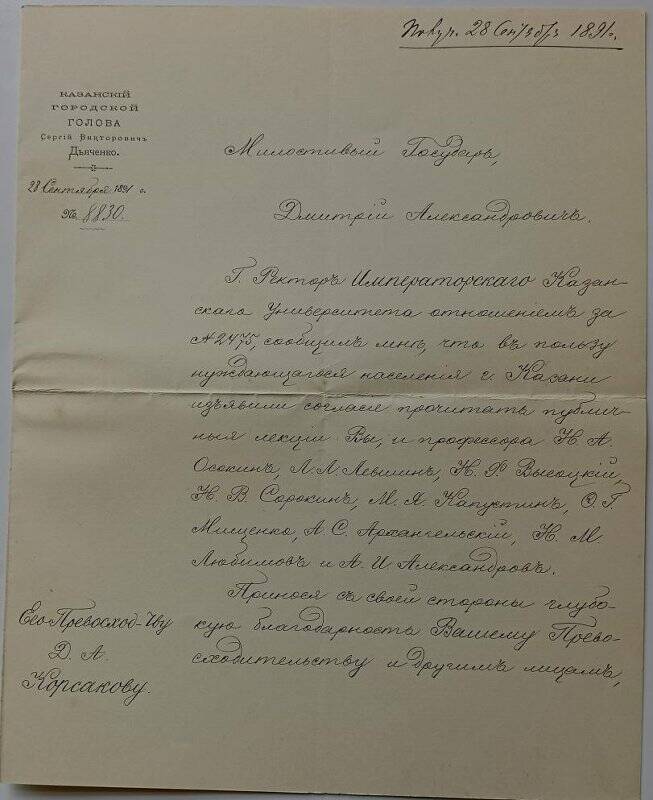 Получ. 28 Сентября 1891 г.
КАЗАНСКІЙ
ГОРОДСКОЙ
ГОЛОВА
Сергій Викторовичъ
Дьяченко.
28 Сентября 1891 г.
№ 8830.
Милостивый Государь,
Дмитрій Александровичъ.
Г. Ректоръ Императорскаго Казан-
скаго Университета отношеніемъ за
№ 2475, сообщилъ мнѣ, что въ пользу
нуждающагося населенія г. Казани
изъявили согласіе прочитать публич-
ныя лекціи Вы, и профессора Н. А.
Осокинъ, Л. Л. Левшинъ, Н. Ф. Высоцкій,
Н. В. Сорокинъ, М. Я. Капустинъ, Ѳ. Г.
Мищенко, А. С. Архангельскій, Н. М
Любимовъ и А. И Александровъ.
Принося съ своей стороны глубо-
кую благодарность Вашему Прево-
сходительству и другимъ лицамъ,
Его Превосход-ву
Д. А.
Корсакову.